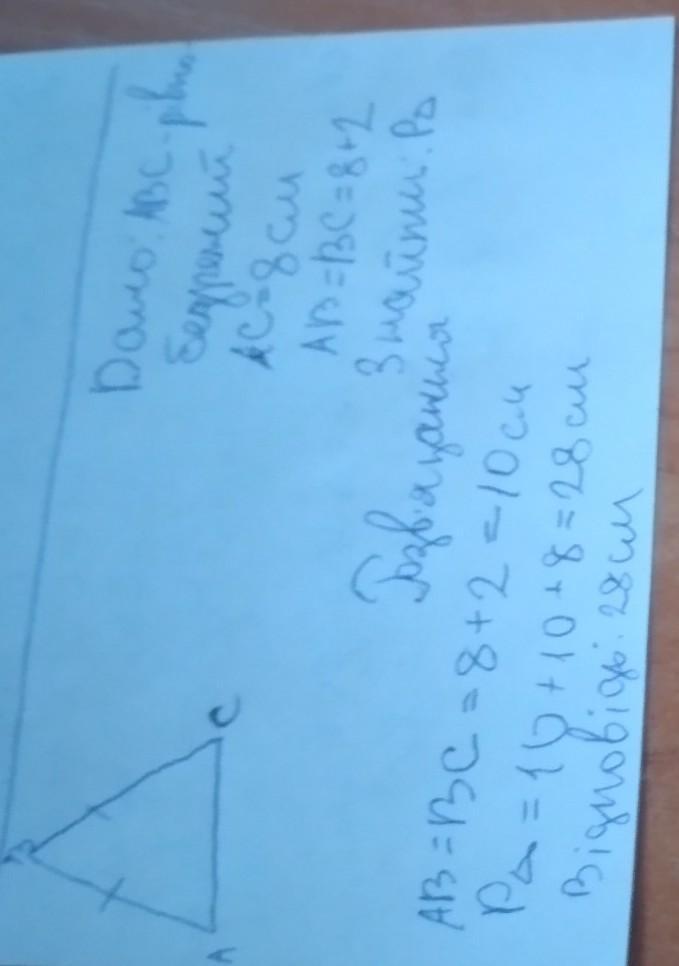 B
A
C
Дано: ABC - рівно-
бедрений
AC=8см
AB=BC=8+2
Знайти: P∆
Розв'язання
AB=BC=8+2=10см
P∆=10+10+8=28см
Відповідь: 28см